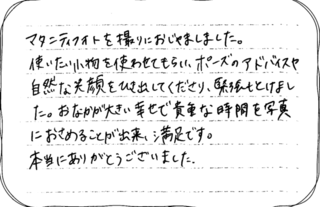 マタニティフォトを撮りにおじゃましました。
使いたい小物を使わせてもらい、ポーズのアドバイスや
自然な笑顔をひき出してくださり、緊張もとけまし
た。おなかが大きい幸せで貴重な時間を写真
におさめることが出来、満足です。
本当にありがとうございました。